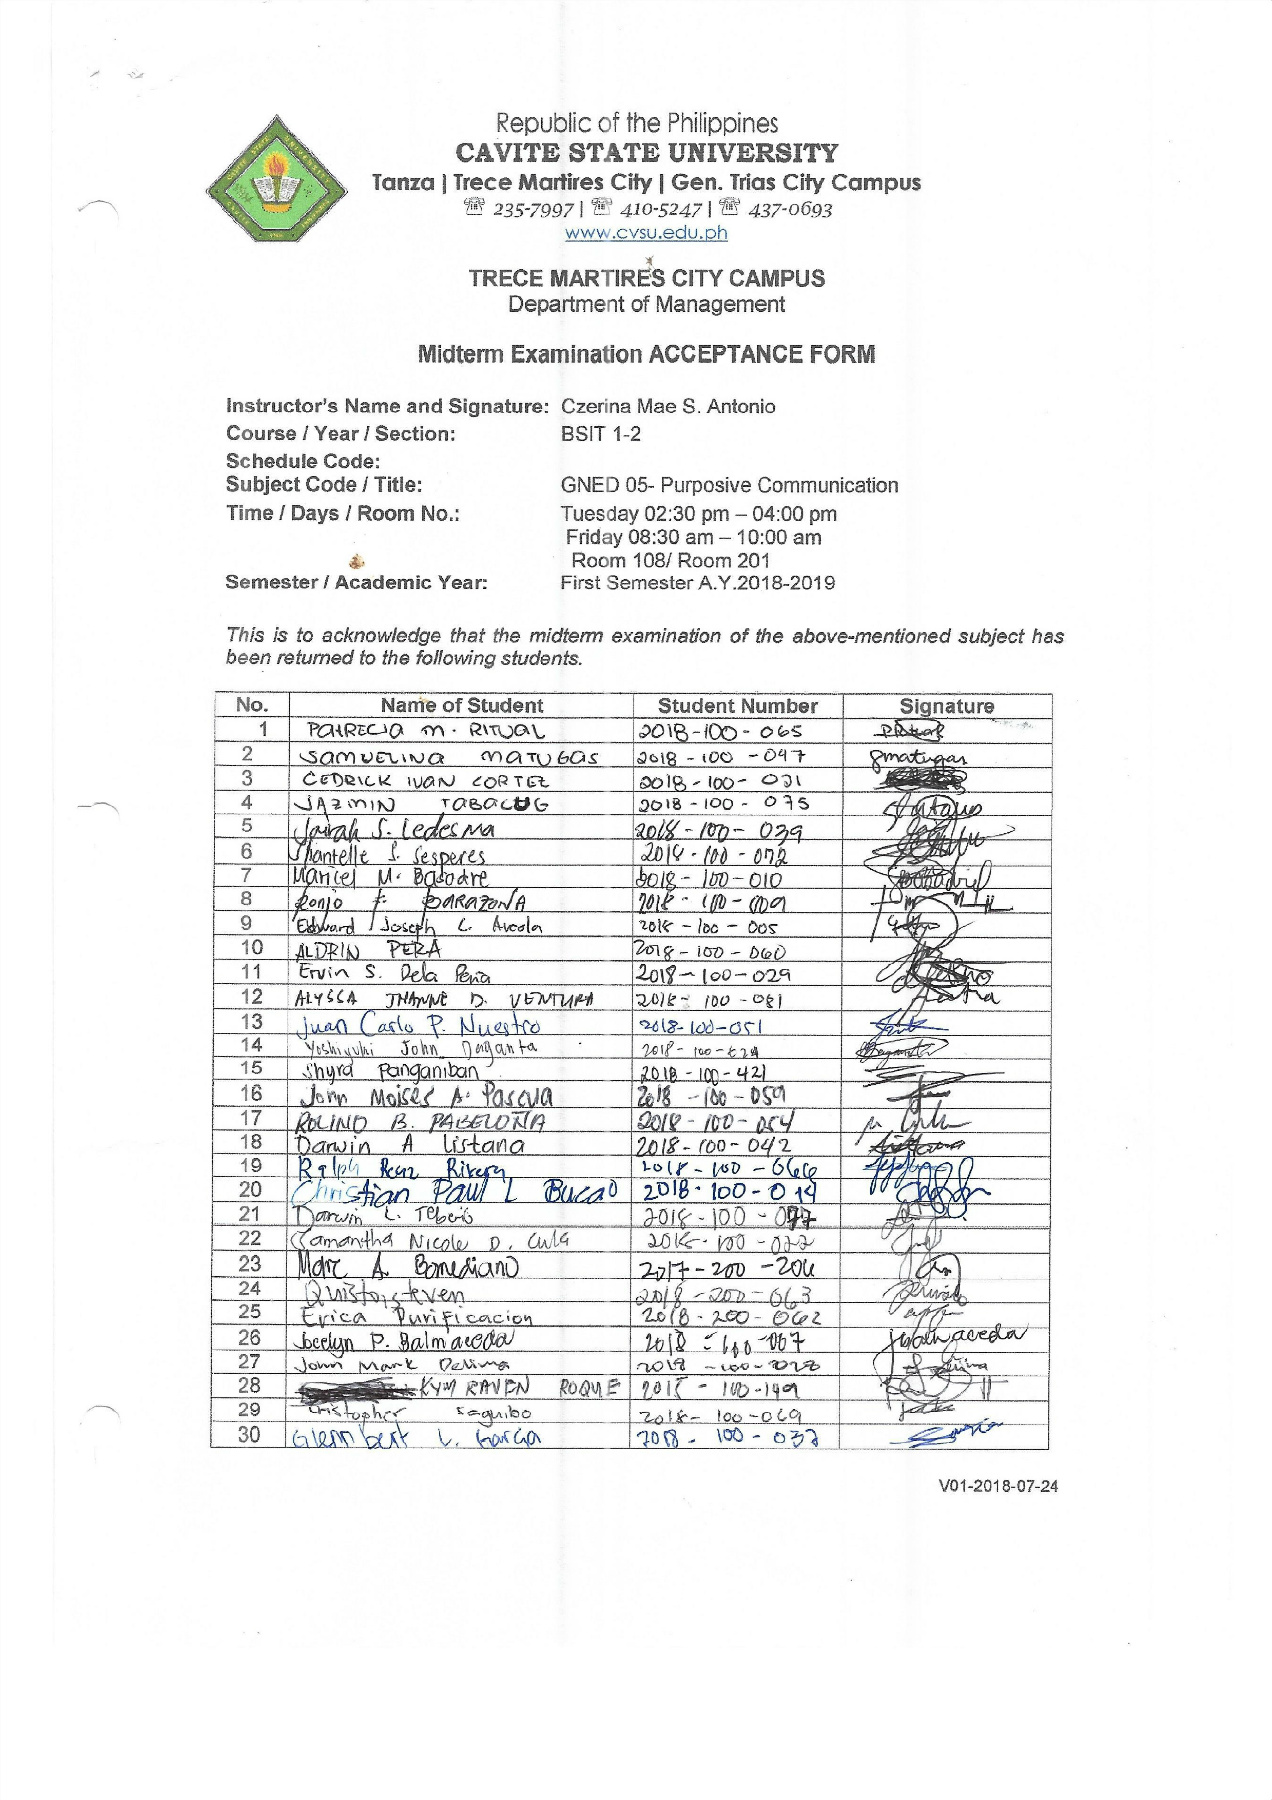 Republic of the Philippines
CAVITE STATE UNIVERSITY
Tanza | Trece Martires City | Gen. Trias City Campus
☏ 235-7997 | ☏ 410-5247 | ☏ 437-0693
www.cvsu.edu.ph
TRECE MARTIRES CITY CAMPUS
Department of Management
Midterm Examination ACCEPTANCE FORM
Instructor's Name and Signature: Czerina Mae S. Antonio
Course / Year / Section: BSIT 1-2
Schedule Code:
Subject Code / Title: GNED 05- Purposive Communication
Time / Days / Room No.: Tuesday 02:30 pm – 04:00 pm
Friday 08:30 am – 10:00 am
Room 108/ Room 201
Semester / Academic Year: First Semester A.Y.2018-2019
This is to acknowledge that the midterm examination of the above-mentioned subject has
been returned to the following students.
No. Name of Student Student Number Signature
1 PATRECIA M. RITUAL 2018-100-065
2 SAMUELINA MATUGAS 2018-100-047 gmatugas
3 CEDRICK IVAN CORTEZ 2018-100-021
4 JAZMIN TABACUG 2018-100-075
5 Jairah S. Ledesma 2018-100-039
6 Shantelle S. Sesperes 2018-100-072
7 Maricel M. Basadre 2018-100-010
8 Ronjo F. BARAZONA 2018-100-009
9 Edward Joseph L. Arcola 2018-100-005
10 ALDRIN PERA 2018-100-060
11 Ervin S. Dela Peña 2018-100-029
12 ALYSSA JHANNE D. VENTURA 2018-100-081
13 Juan Carlo P. Nuestro 2018-100-051
14 Yoshiyuki John 2018-100-
15 Shyra Panganiban 2018-100-421
16 John Moises A. Pascua 2018-100-059
17 ROLIND B. PABELOÑA 2018-100-054
18 Darwin A Listana 2018-100-042
19 Ralph Renz Rivera 2018-100-066
20 Christian Paul L Bucao 2018-100-014
21 Darwin L. 2018-100-077
22 Samantha Nicole D. Cula 2018-100-022
23 Marc A. Bomediano 2017-200-206
24 Quisto, steven 2018-200-063
25 Erica Purificacion 2018-200-062
26 Jocelyn P. Balmaceda 2018-100-007 jbalmaceda
27 John Mark Delima 2018-100-028
28 KYM RAVEN ROQUE 2015-100-149
29 Cristopher Saguibo 2018-100-069
30 Glennbert L. Garcia 2018-100-037
V01-2018-07-24